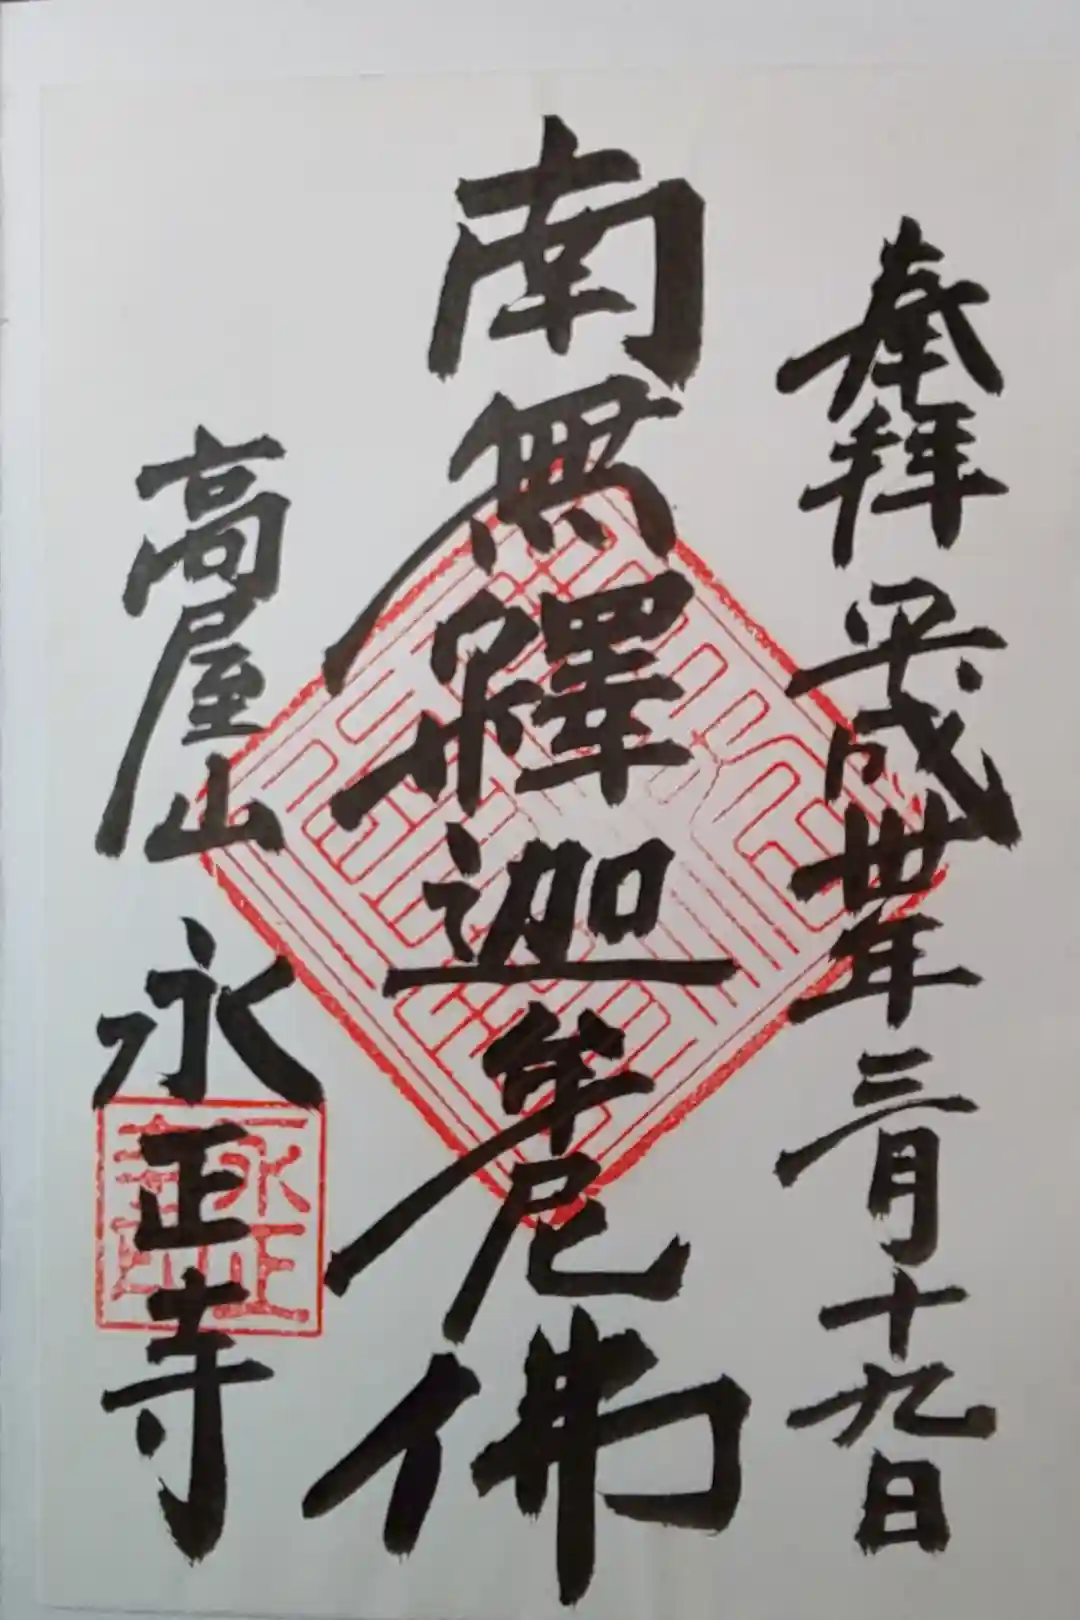 奉拜 平成卅年三月十九日
南無釋迦牟尼佛
高屋山 永正寺